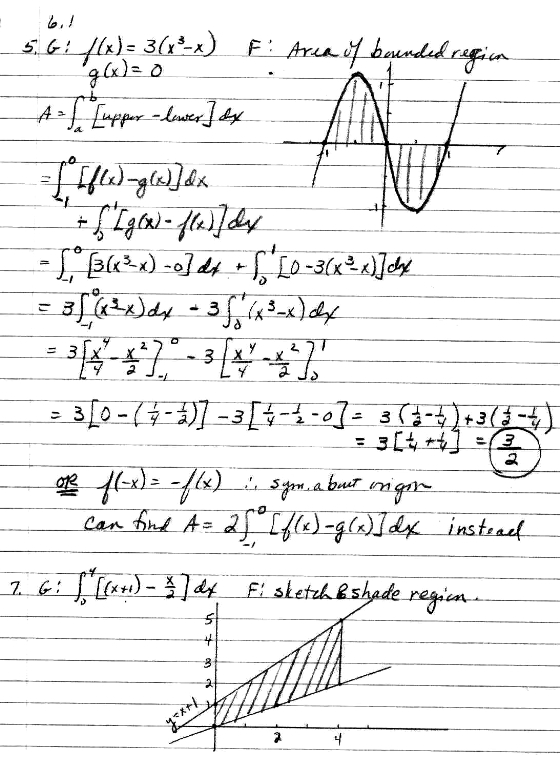 6.1
5. G: f(x) = 3(x³-x) F: Area of bounded region
g(x) = 0
A = ∫ₐᵇ [upper - lower] dx
1
-1 1
-1
= ∫₋₁⁰ [f(x) - g(x)] dx
+ ∫₀¹ [g(x) - f(x)] dx
= ∫₋₁⁰ [3(x³-x) - 0] dx + ∫₀¹ [0 - 3(x³-x)] dx
= 3∫₋₁⁰ (x³-x) dx - 3∫₀¹ (x³-x) dx
= 3[x⁴/4 - x²/2]₋₁⁰ - 3[x⁴/4 - x²/2]₀¹
= 3[0 - (1/4 - 1/2)] - 3[1/4 - 1/2 - 0] = 3(1/2 - 1/4) + 3(1/2 - 1/4)
= 3[1/4 + 1/4] = 3/2
OR f(-x) = -f(x) ∴ sym. about origin
can find A = 2∫₋₁⁰ [f(x) - g(x)] dx instead
7. G: ∫₀⁴ [(x+1) - x/2] dx F: sketch & shade region.
5
4
3
2
1
y=x+1
2 4